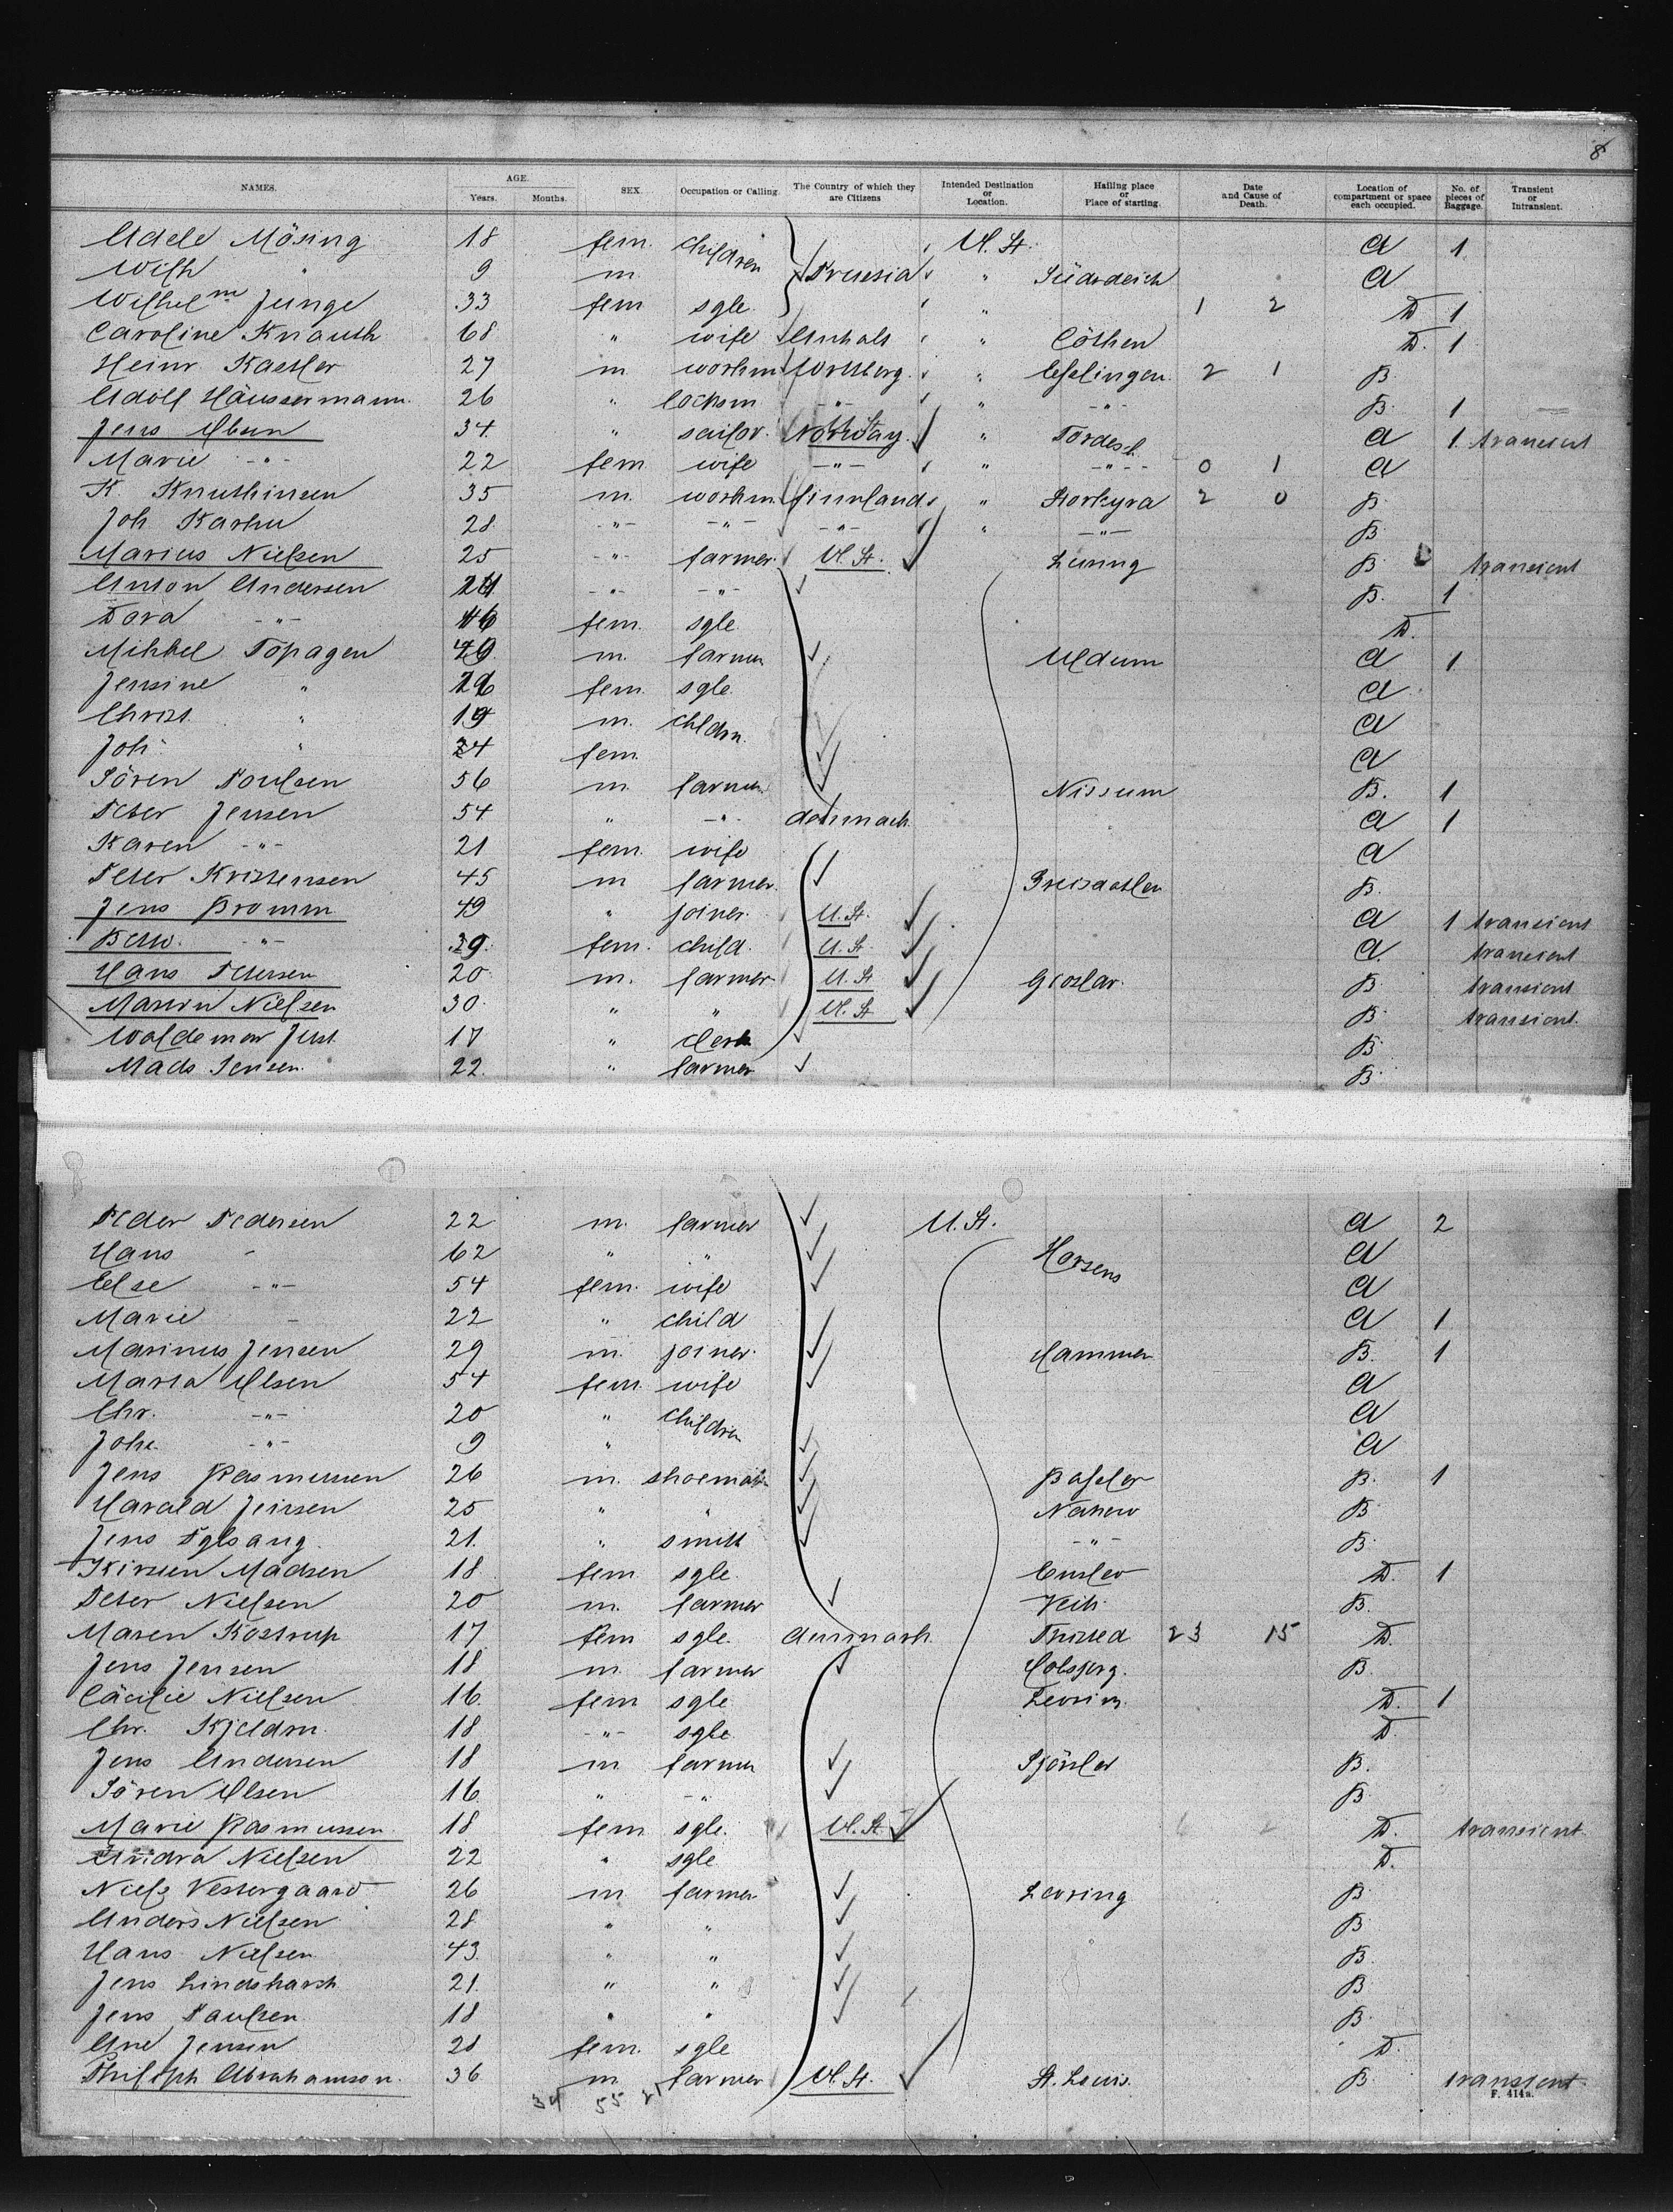 8
NAMES. AGE. Years. Months. SEX. Occupation or Calling. The Country of which they are Citizens Intended Destination or Location. Hailing place or Place of starting. Date and Cause of Death. Location of compartment or space each occupied. No. of pieces of Baggage. Transient or Intransient.
Adele Mösing 18 fem. children U. St. a 1
Wilh " 9 m Prussia " Süderdeich a
Wilhelm Junge 33 fem sgle " 1 2 D 1
Caroline Knauth 68 " wife Anhalt " Cöthen D. 1
Heinr. Kastler 27 m workm " Esslingen 2 1 B.
Adolf Häussermann 26 " locksm -"- " -"- B. 1
Jens Olsen 34 " sailor. Norway " a 1. transient
Marie -"- 22 fem wife -"- " -"- 0 1 a
K. 35 m. workm. Finnland " Storkyra 2 0 B
Joh Karhu 28 -"- -"- -"- " -"- B.
Marius Nielsen 25 -"- farmer. U. St. B transient
Anton Andersen -"- -"- B. 1
Dora -"- fem. sgle D.
Mikkel m. farmer Uldum a 1
Jensine " fem. sgle a
Christ. " 19 m. chldrn. a
Joh. " fem. a
Sören Poulsen 56 m. farmer. Nissum B. 1
Peter Jensen 54 " -"- denmark a 1
Karen -"- 21 fem. wife a
Peter Kristensen 45 m farmer. B.
Jens Bromm 49 " joiner. U. St. a 1 transient
-"- 29. fem. child. U. St. a. transient
Hans Petersen 20 m. farmer U. St B transient
Nielsen 30 " " U. St B transient.
Waldemar Just 17 " clerk B
Mads Jensen. 22. " farmer B
Peder Pedersen 22 m. farmer U. St. a 2
Hans - 62 " " Horsens a
Else -"- 54 fem. wife a
Marie - 22 " child a 1
Marinus Jensen 29 m. joiner. Hammer B. 1
Maria Olsen 54 fem. wife a
Chr. -"- 20 " children a
Johe. -"- 9 " a
Jens Rasmussen 26 m. shoemak B. 1
Harald Jensen 25 " " B
Jens 21. " smith -"- B.
Kirsten Madsen 18 fem sgle. D. 1
Peter Nielsen 20 m. farmer B.
Maren Kostrup 17 fem sgle. denmark Thisted 23 15 D.
Jens Jensen 18 m. farmer B.
Cäcilie Nielsen 16. fem sgle D. 1
Chr. Kjeldrn. 18 -"- sgle D.
Jens Andersen 18 m farmer B.
Sören Olsen 16. " -"- B.
Marie Rasmussen 18 fem sgle. U. St D. transient.
Andra Nielsen 22 " sgle D.
Niels Vestergaard 26 m farmer Levring B
Anders Nielsen 28 " " B
Hans Nielsen 43. " " B.
Jens 21. " " B
Jens Paulsen 18 " " B.
Ane Jensen 28 fem. sgle D.
Philiph Abrahamson. 36 m farmer U. St. St. Louis. B transient.
34 55 21
F. 414a.